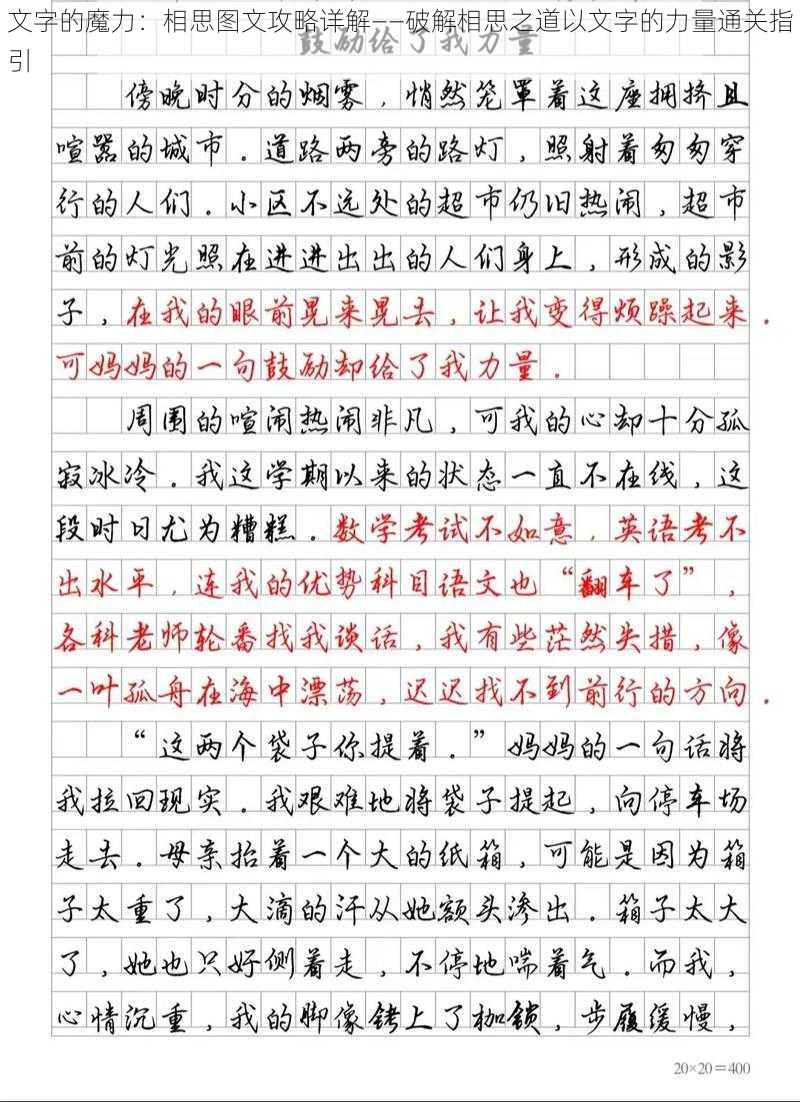 文字的魔力：相思图文攻略详解——破解相思之道以文字的力量通关指
引
鼓励给了我力量
傍晚时分的烟雾，悄然笼罩着这座拥挤且
喧嚣的城市。道路两旁的路灯，照射着匆匆穿
行的人们。小区不远处的超市仍旧热闹，超市
前的灯光照在进进出出的人们身上，形成的影
子，在我的眼前晃来晃去，让我变得烦躁起来。
可妈妈的一句鼓励却给了我力量。
周围的喧闹热闹非凡，可我的心却十分孤
寂冰冷。我这学期以来的状态一直不在线，这
段时日尤为糟糕。数学考试不如意，英语考不
出水平，连我的优势科目语文也“翻车了”，
各科老师轮番找我谈话，我有些茫然失措，像
一叶孤舟在海中漂荡，迟迟找不到前行的方向。
“这两个袋子你提着。”妈妈的一句话将
我拉回现实。我艰难地将袋子提起，向停车场
走去。母亲抬着一个大的纸箱，可能是因为箱
子太重了，大滴的汗从她额头渗出。箱子太大
了，她也只好侧着走，不停地喘着气。而我，
心情沉重，我的脚像铐上了枷锁，步履缓慢，
20×20＝400